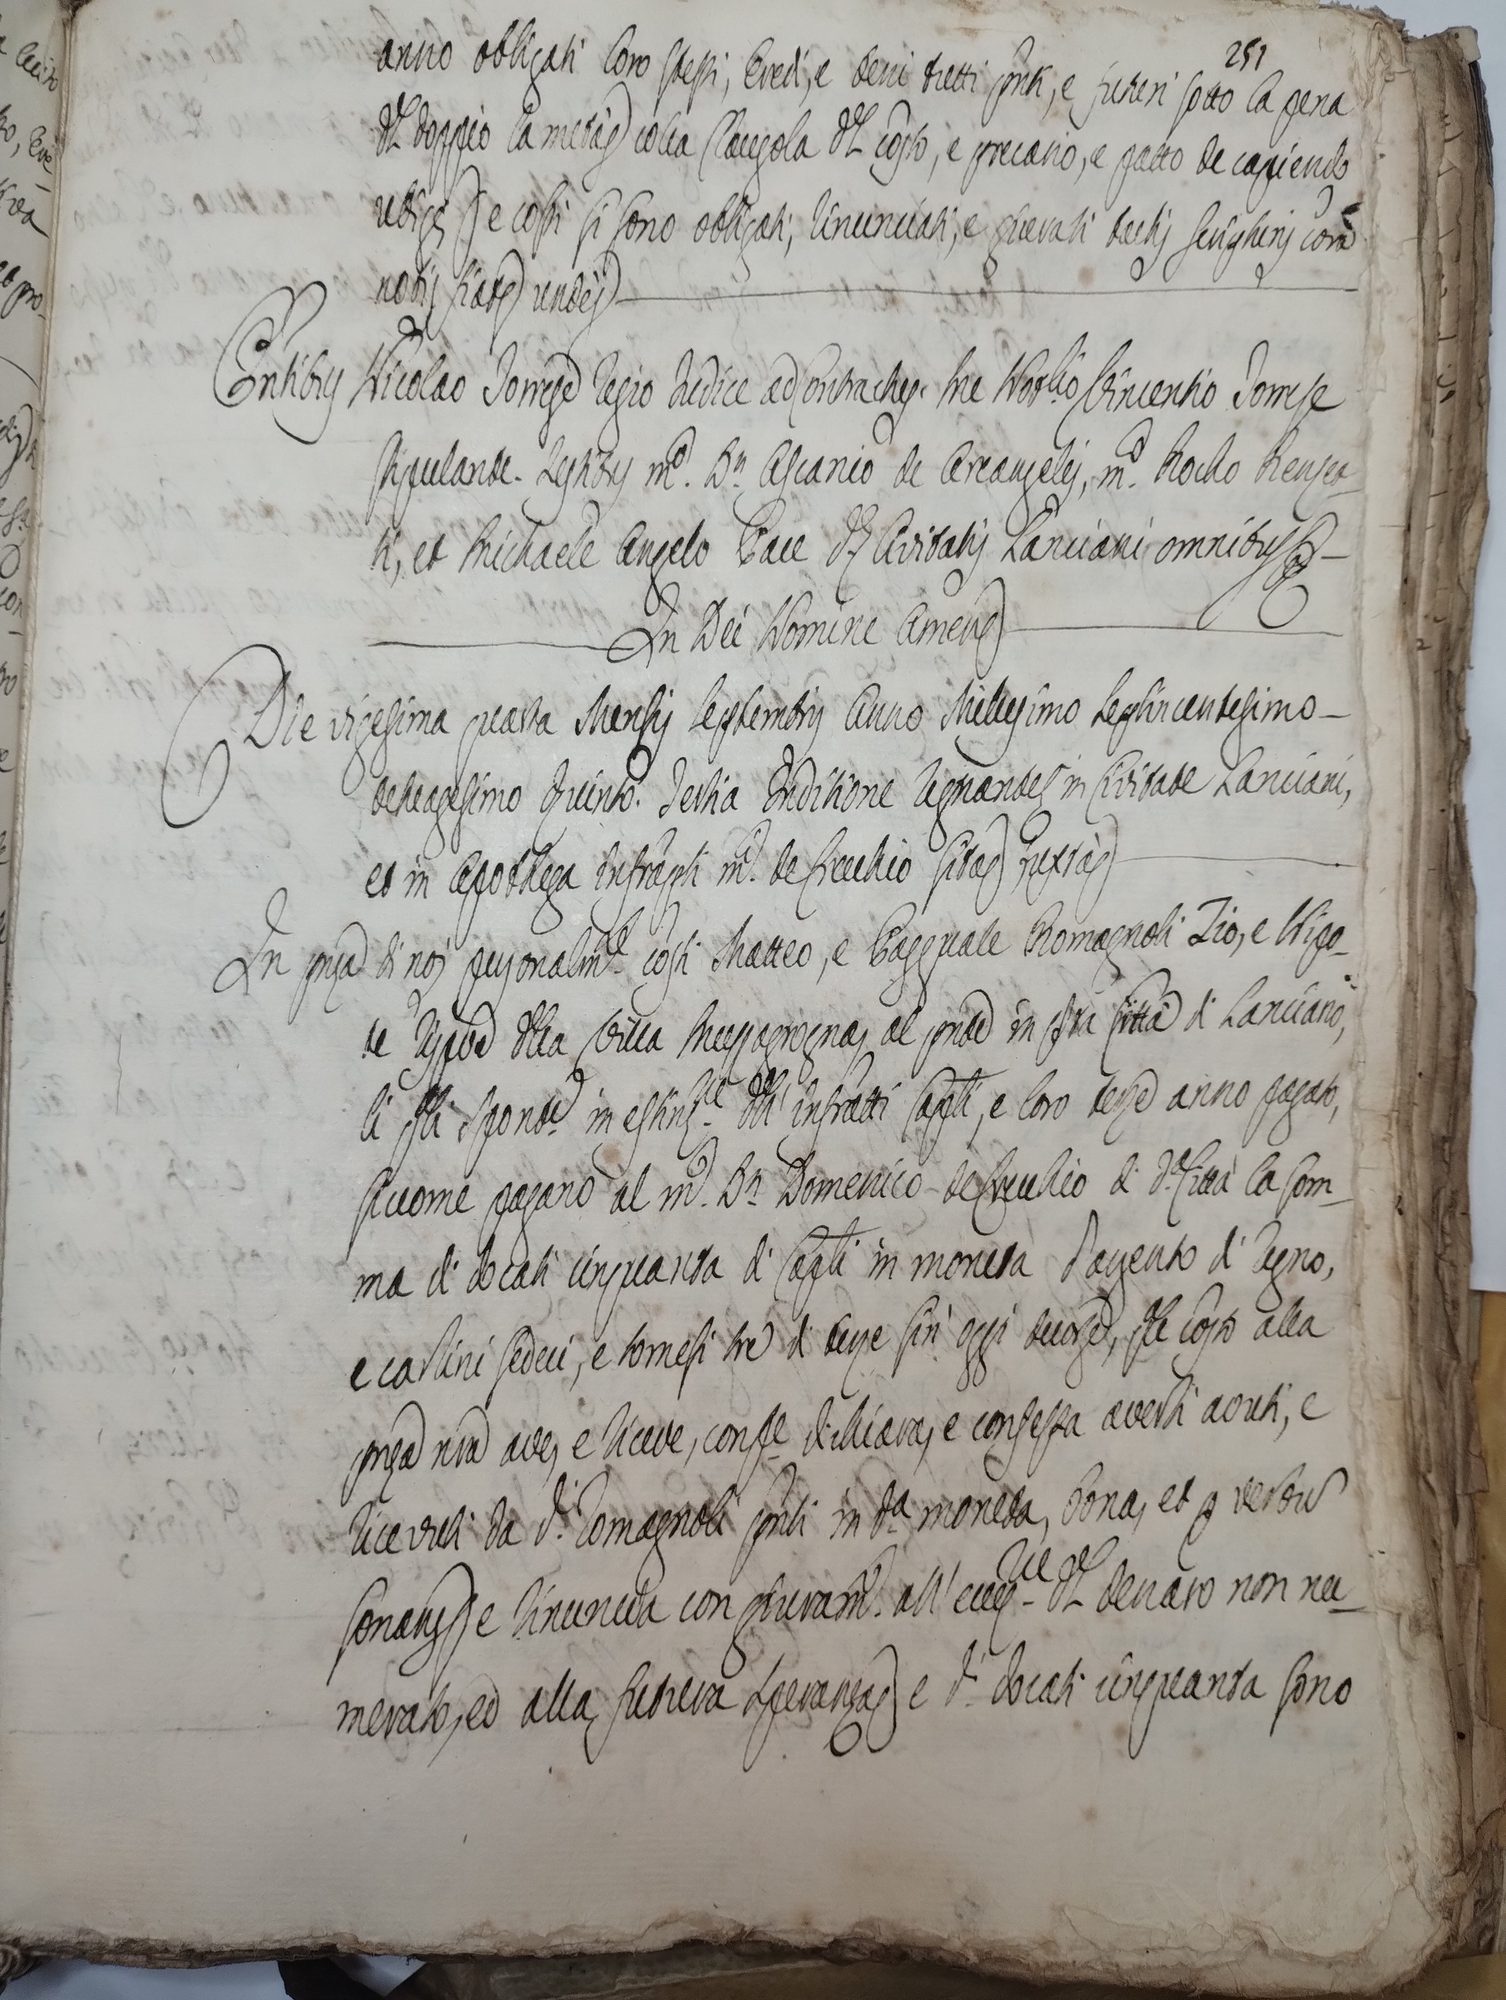 251
anno obligati loro stessi, eredi, e beni tutti pnti, e futuri sotto la pena
del doppio la metàq colla Clausola del costo, e precario, e patto de capiendo
e cossi si sono obligati, rinunciati, e giurati tactis scripturis coram
nobis
Nicolao Torrese Regio Iudice ad Contractus. me Notro Vincentio Torrese
stipulante. Testibus m.co D.n Ascanio de Arcangelis, m.o Rocho
ti, et Michaele Angelo Pace de Civitatis Lanciani omnibus
In Dei Nomine Amen
Die vigesima quarta Mensis Septembris Anno Millesimo Septincentesimo
quinto. Tertia Inditione Regnante in Civitate Lanciani,
et in Apothega infrascpti m.ci de Cecchio sita iuxta
In pnza di noi personalmte costi Matteo, e Pasquale Romagnoli Zio, e Nipo-
te rispve della Villa Mezzagrogna, al pnte in qta Città di Lanciano,
li qli sponte in estinzne delli infratti Captli, e loro terze anno pagato,
siccome pagano al m.co D.n Domenico de Cecchio di d.a Città la som-
ma di docati cinquanta di Captli in moneta d'argento di Regno,
e carlini sedeci, e tornesi tre di terze sin oggi decorse, qle costo alla
pnza nra ave, e riceve, confe dichiara, e confessa averli avuti, e
ricevuti da d.i Romagnoli pnti in d.a moneta, bona, et
e rinuncia con giuramto all' eccezne del denaro non nu-
merato, ed alla futura speranza e d.i docati cinquanta sono